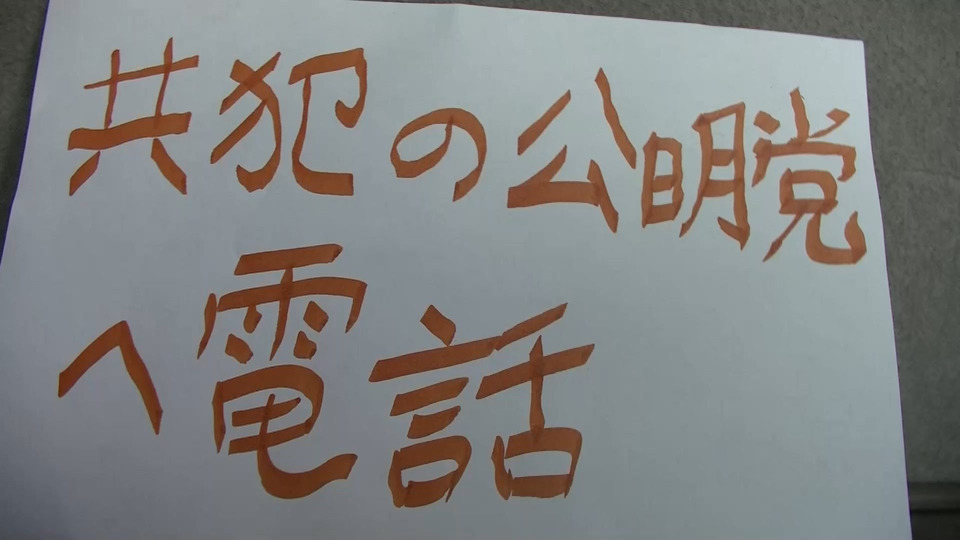 共犯の公明党
へ電話